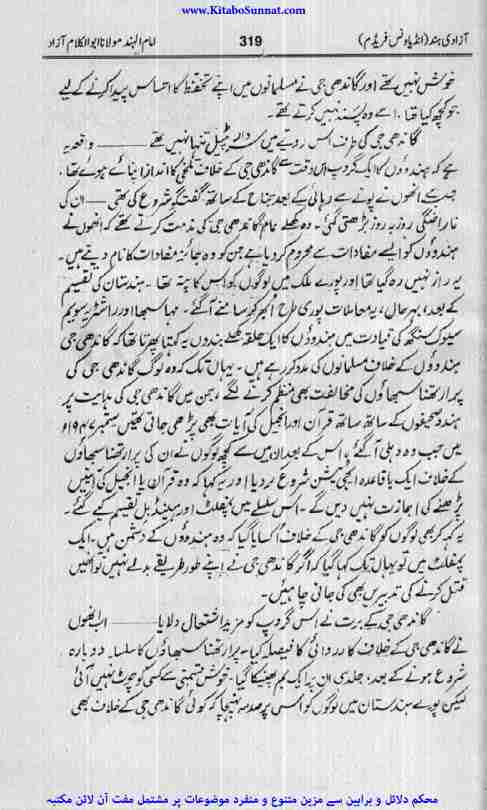 www.KitaboSunnat.com
آزادی ہند (انڈیا ونس فریڈم)
319
امام الہند مولانا ابوالکلام آزاد
خوش نہیں تھے اور گاندھی جی نے مسلمانوں میں اپنے تحفظ کا احساس پیدا کرنے کے لیے
جو کچھ کیا تھا، اسے وہ پسند نہیں کرتے تھے۔
گاندھی جی کی طرف اس رویے میں سردار پٹیل تنہا نہیں تھے ــــ واقعہ یہ
ہے کہ ہندوؤں کا ایک گروپ اس وقت سے گاندھی جی کے خلاف تلخی کا انداز اپنائے ہوئے تھا،
جب سے انھوں نے پونے سے رہائی کے بعد جناح کے ساتھ گفتگو شروع کی تھی ــــ ان کی
ناراضگی روز بہ روز بڑھتی گئی۔ وہ کھلے عام گاندھی جی کی مذمت کرتے تھے کہ انھوں نے
ہندوؤں کو ایسے مفادات سے محروم کر دیا ہے جن کو وہ جائز مفادات کا نام دیتے ہیں۔
یہ راز نہیں رہ گیا تھا اور پورے ملک میں لوگوں کو اس کا پتہ تھا۔ ہندستان کی تقسیم
کے بعد، بہر حال، یہ معاملات پوری طرح ابھر کر سامنے آ گئے۔ مہا سبھا اور راشٹریہ سویم
سیوک سنگھ کی قیادت میں ہندوؤں کا ایک حلقہ کھلے بندوں یہ کہتا پھرتا تھا کہ گاندھی جی
ہندوؤں کے خلاف مسلمانوں کی مدد کر رہے ہیں۔ یہاں تک کہ وہ لوگ گاندھی جی کی
پرارتھنا سبھاؤں کی مخالفت بھی منظم کرنے لگے، جن میں گاندھی جی کی ہدایت پر
ہندو صحیفوں کے ساتھ ساتھ قرآن اور انجیل کی آیات بھی پڑھی جاتی تھیں۔ ستمبر ۱۹۴۷ء
میں جب وہ دہلی آ گئے، اس کے بعد ان میں سے کچھ لوگوں نے ان کی پرارتھنا سبھاؤں
کے خلاف ایک باقاعدہ ایجی ٹیشن شروع کر دیا اور یہ کہا کہ وہ قرآن یا انجیل کی آیتیں
پڑھنے کی اجازت نہیں دیں گے۔ اس سلسلے میں پمفلٹ اور ہینڈ بل تقسیم کیے گئے۔
یہ کہہ کر بھی لوگوں کو گاندھی جی کے خلاف اکسایا گیا کہ وہ ہندوؤں کے دشمن ہیں۔ ایک
پمفلٹ میں تو یہاں تک کہا گیا کہ اگر گاندھی جی نے اپنے طور طریقے بدلے نہیں تو انھیں
قتل کرنے کی تدبیریں بھی کی جانی چاہئیں۔
گاندھی جی کے برت نے اس گروپ کو مزید اشتعال دلایا ــــ اب انھوں
نے گاندھی جی کے خلاف کارروائی کا فیصلہ کیا۔ پرارتھنا سبھاؤں کا سلسلہ دوبارہ
شروع ہونے کے بعد، جلد ہی ان پر ایک بم پھینکا گیا۔ خوش قسمتی سے کسی کو چوٹ نہیں آئی
لیکن پورے ہندستان میں لوگوں کو اس پر صدمہ پہنچا کہ کوئی گاندھی جی کے خلاف بھی
محکم دلائل و براہین سے مزین متنوع و منفرد موضوعات پر مشتمل مفت آن لائن مکتبہ